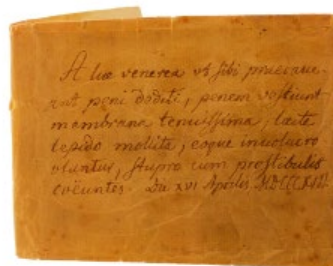 A lue venerea ut sibi praecave-
ant peni dediti, penem vestiunt
membrana tenuissima, lacte
tepido mollita, eoque involucro
voluntus, stupro cum prostibulis
coëuntes. Die XVI Aprilis